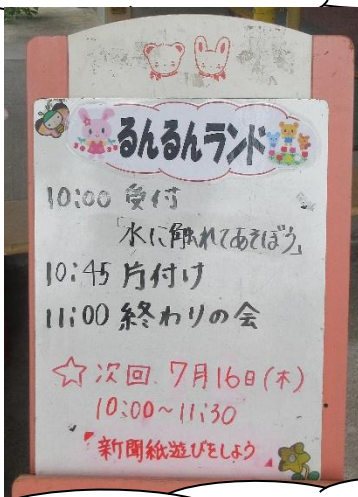 るんるんランド
10:00 受付
「水に触れてあそぼう」
10:45 片付け
11:00 終わりの会
☆次回 7月16日(木)
10:00～11:30
"新聞紙遊びをしよう"